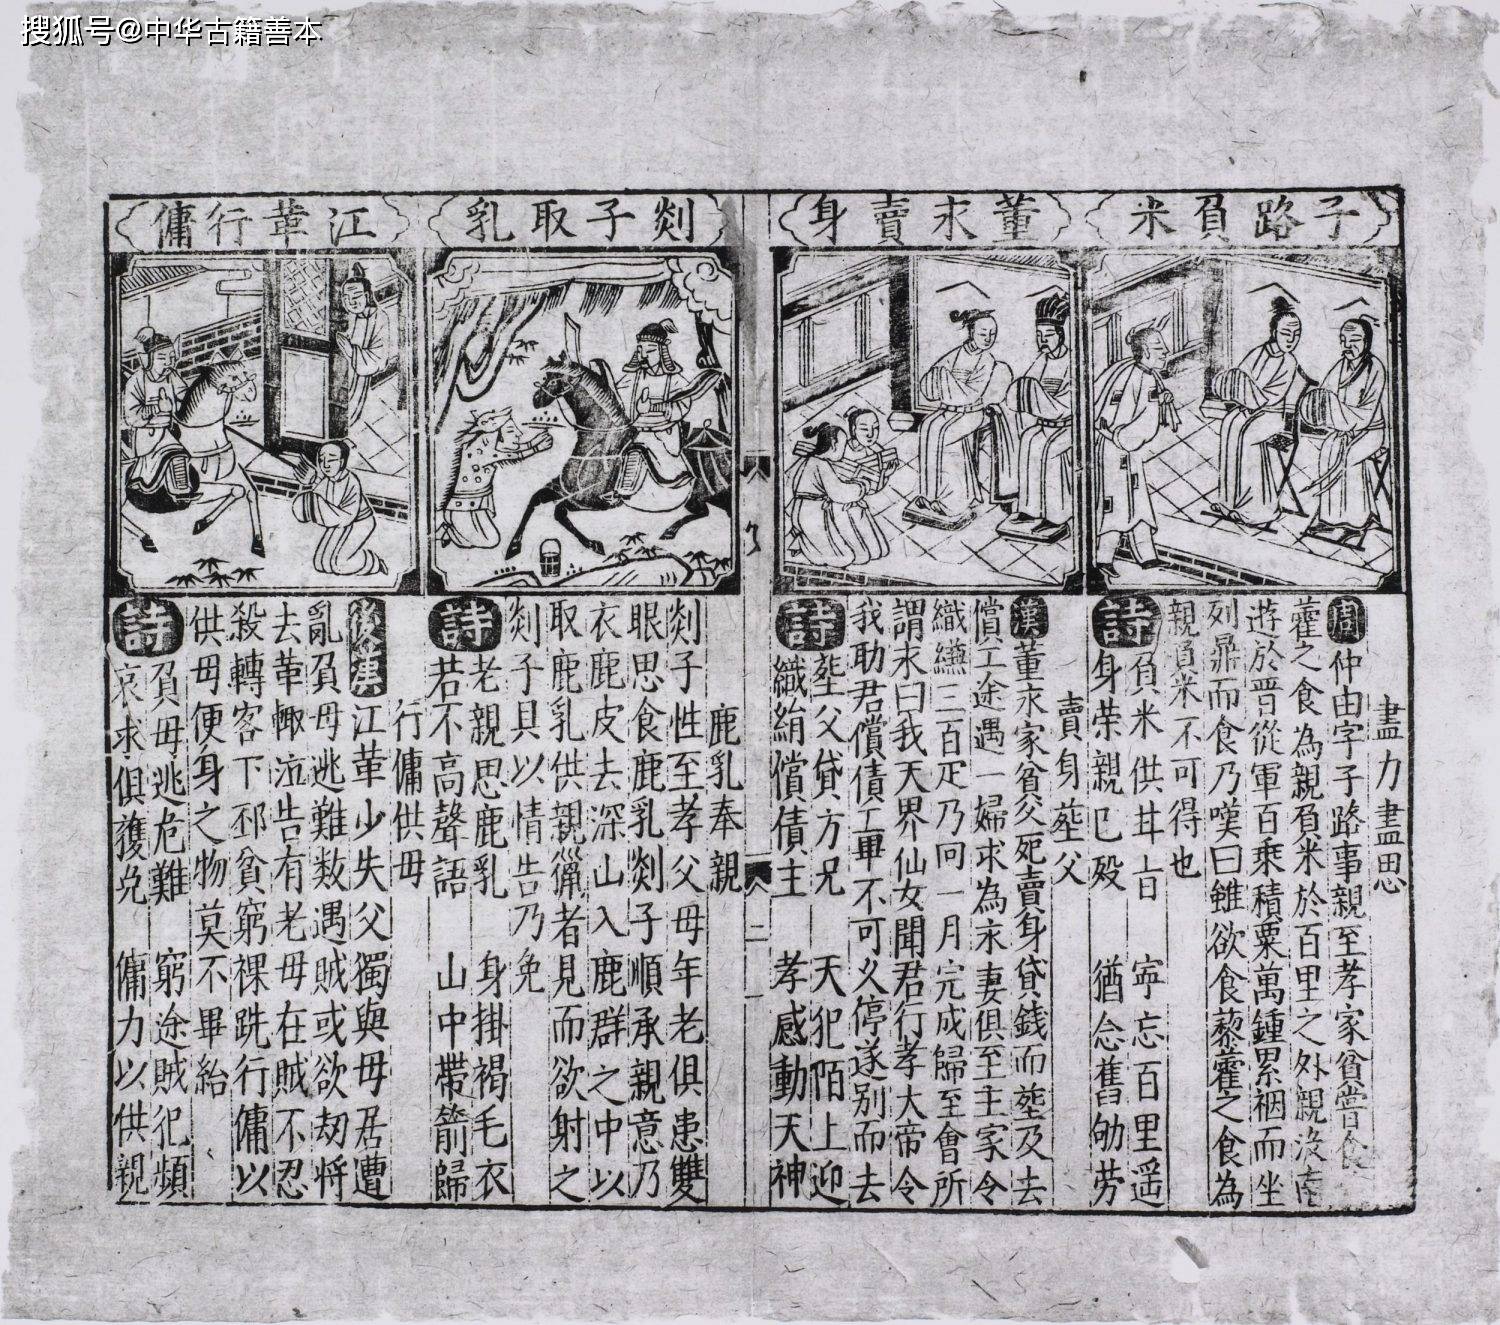 搜狐号@中华古籍善本
子路負米
盡力盡思
周仲由字子路事親至孝家貧嘗食
藿之食為親負米於百里之外親沒南
遊於晋從軍百乘積粟萬鍾累裀而坐
列鼎而食乃嘆曰雖欲食藜藿之食為
親負米不可得也
詩 負米供甘旨 寧忘百里遥
身荣親已殁 猶念舊劬劳
董永賣身
賣身塟父
漢董永家貧父死賣身貸錢而塟及去
償工途遇一婦求為永妻俱至主家令
織縑三百疋乃回一月完成歸至會所
謂永曰我天界仙女聞君行孝大帝令
我助君償債工畢不可久停遂别而去
詩 塟父貸方兄 天犯陌上迎
織絹償債主 孝感動天神
二
剡子取乳
鹿乳奉親
剡子性至孝父母年老俱患雙
眼思食鹿乳剡子順承親意乃
衣鹿皮去深山入鹿群之中以
取鹿乳供親獵者見而欲射之
剡子具以情告乃免
詩 老親思鹿乳 身掛褐毛衣
若不高聲語 山中帶箭歸
江革行傭
行傭供母
後漢江革少失父獨與母居遭
亂負母逃難数遇賊或欲刼将
去革輙泣告有老母在賊不忍
殺轉客下邳貧窮裸跣行傭以
供母便身之物莫不畢給
詩 負母逃危難 窮途賊犯頻
哀求俱獲免 傭力以供親